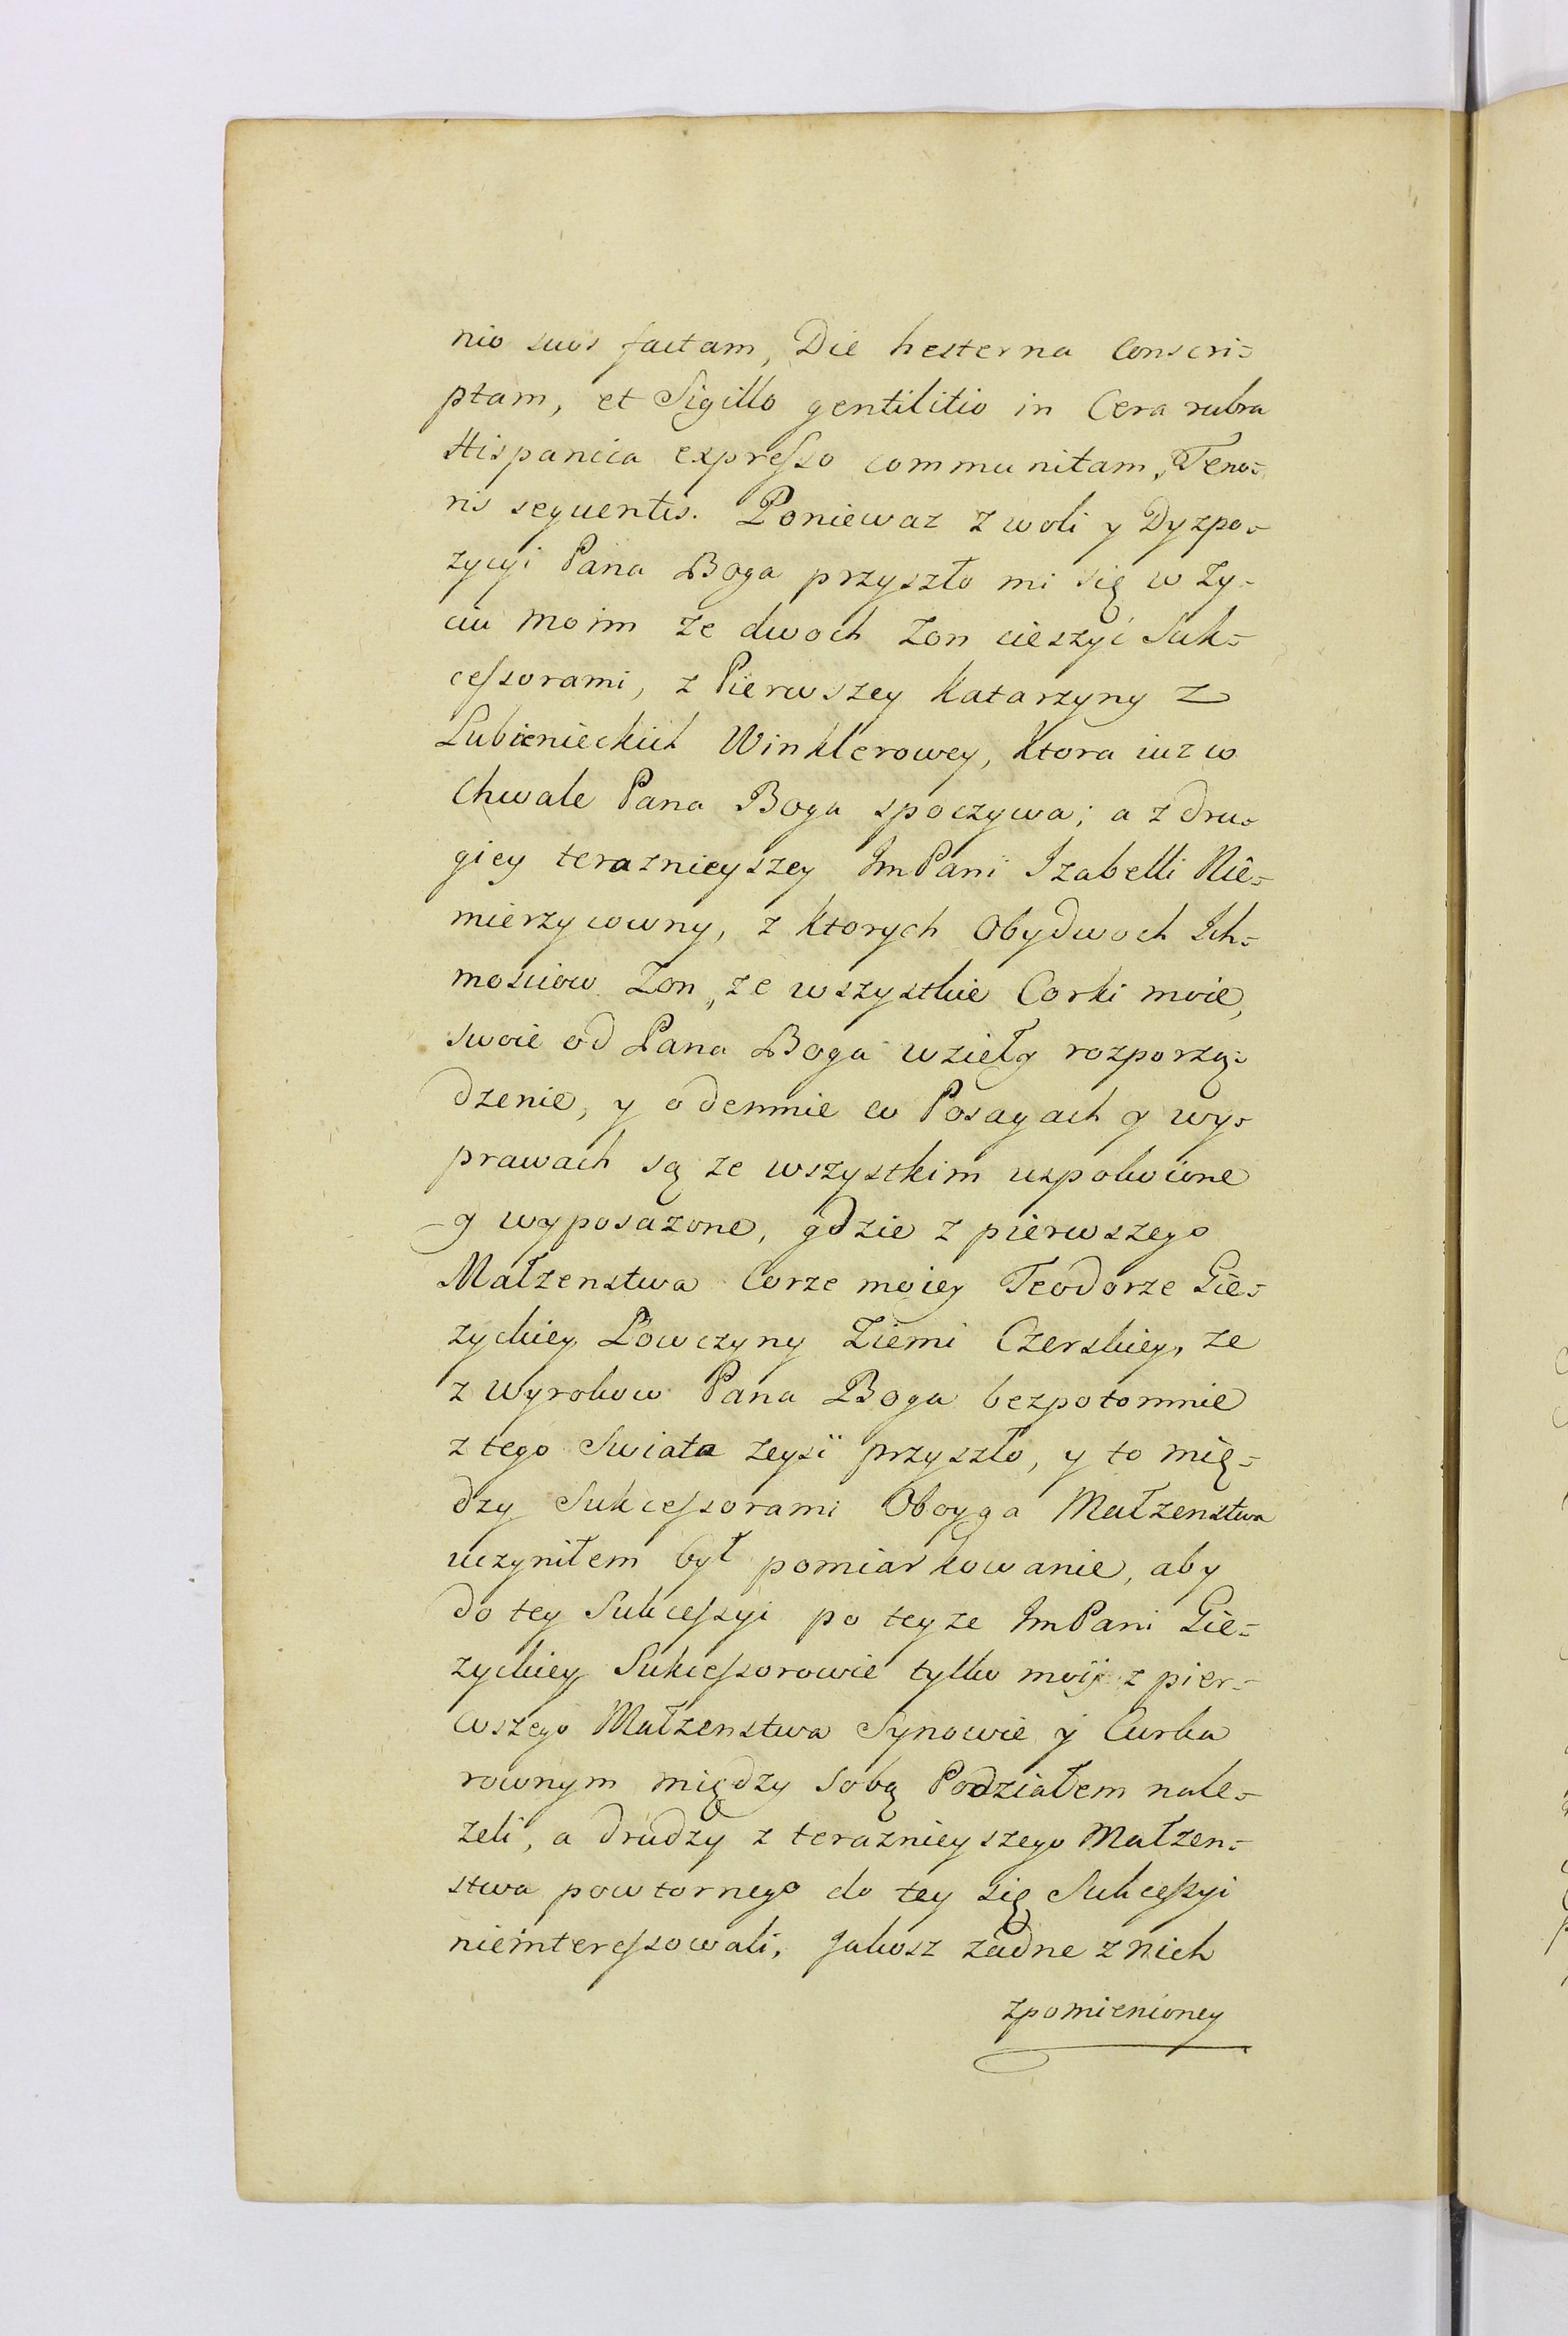 nio suos factam, Die hesterna Conscri=
ptam, et Sigillo gentilitio in Cera rubra
Hispanica expresso communitam, Teno=
ris sequentis. Poniewaz z woli y Dyzpo=
zycyi Pana Boga przyszło mi się w zy=
ciu moim ze dwoch Zon cieszyć Suk=
cessorami, z Pierwszey Katarzyny z
Lubienieckich Winklerowey, Ktora iuz w
Chwale Pana Boga spoczywa; a z dru=
giey teraznieyszey ImPani Izabelli Nie=
mierzycowny, z Ktorych Obydwoch Ich=
mosciow Zon, ze wszystkie Corki moie,
swoie od Pana Boga wzieły rozporzą=
dzenie, y odemnie w Posagach y wy=
prawach są ze wszystkim uspokoione
y wyposazone, gdzie z pierwszego
Małzenstwa Corze moiey Teodorze Gie=
zyckiey Łowczyny Ziemi Czerskiey, ze
z Wyrokow Pana Boga bezpotomnie
z tego Swiata zeysi przyszło, y to mię=
dzy Sukcessorami Oboyga Małzenstwa
uczyniłem był pomiarkowanie, aby
do tey Sukcessyi po teyze ImPani Gie=
zyckiey Sukcessorowie tylko moij z pier=
wszego Małzenstwa Synowie y Curka
rownym między sobą Podziałem nale=
zeli, a drudzy z teraznieyszego Małzen=
stwa powtornego do tey się Sukcessyi
nieinteressowali, Jakosz zadne z nich
zpomienioney